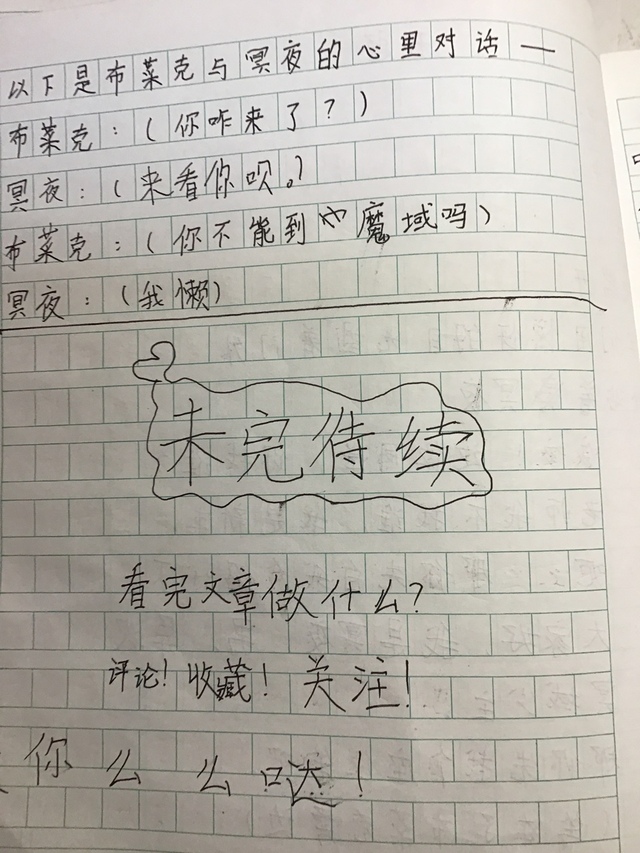 以下是布莱克与冥夜的心里对话一
布莱克：（你咋来了？）
冥夜：（来看你呗。）
布莱克：（你不能到魔域吗）
冥夜：（我懒）
未完待续
看完文章做什么？
评论！收藏！关注！
你么么哒！